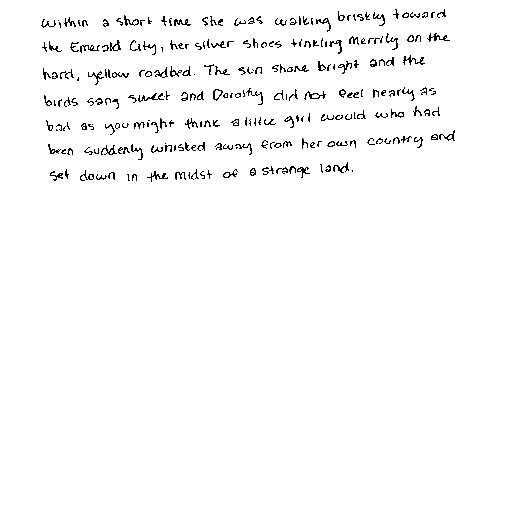 Within a short time she was walking briskly toward
the Emerald City, her silver shoes tinkling merrily on the
hard, yellow roadbed. The sun shone bright and the
birds sang sweet and Dorothy did not feel nearly as
bad as you might think a little girl would who had
been suddenly whisked away from her own country and
set down in the midst of a strange land.